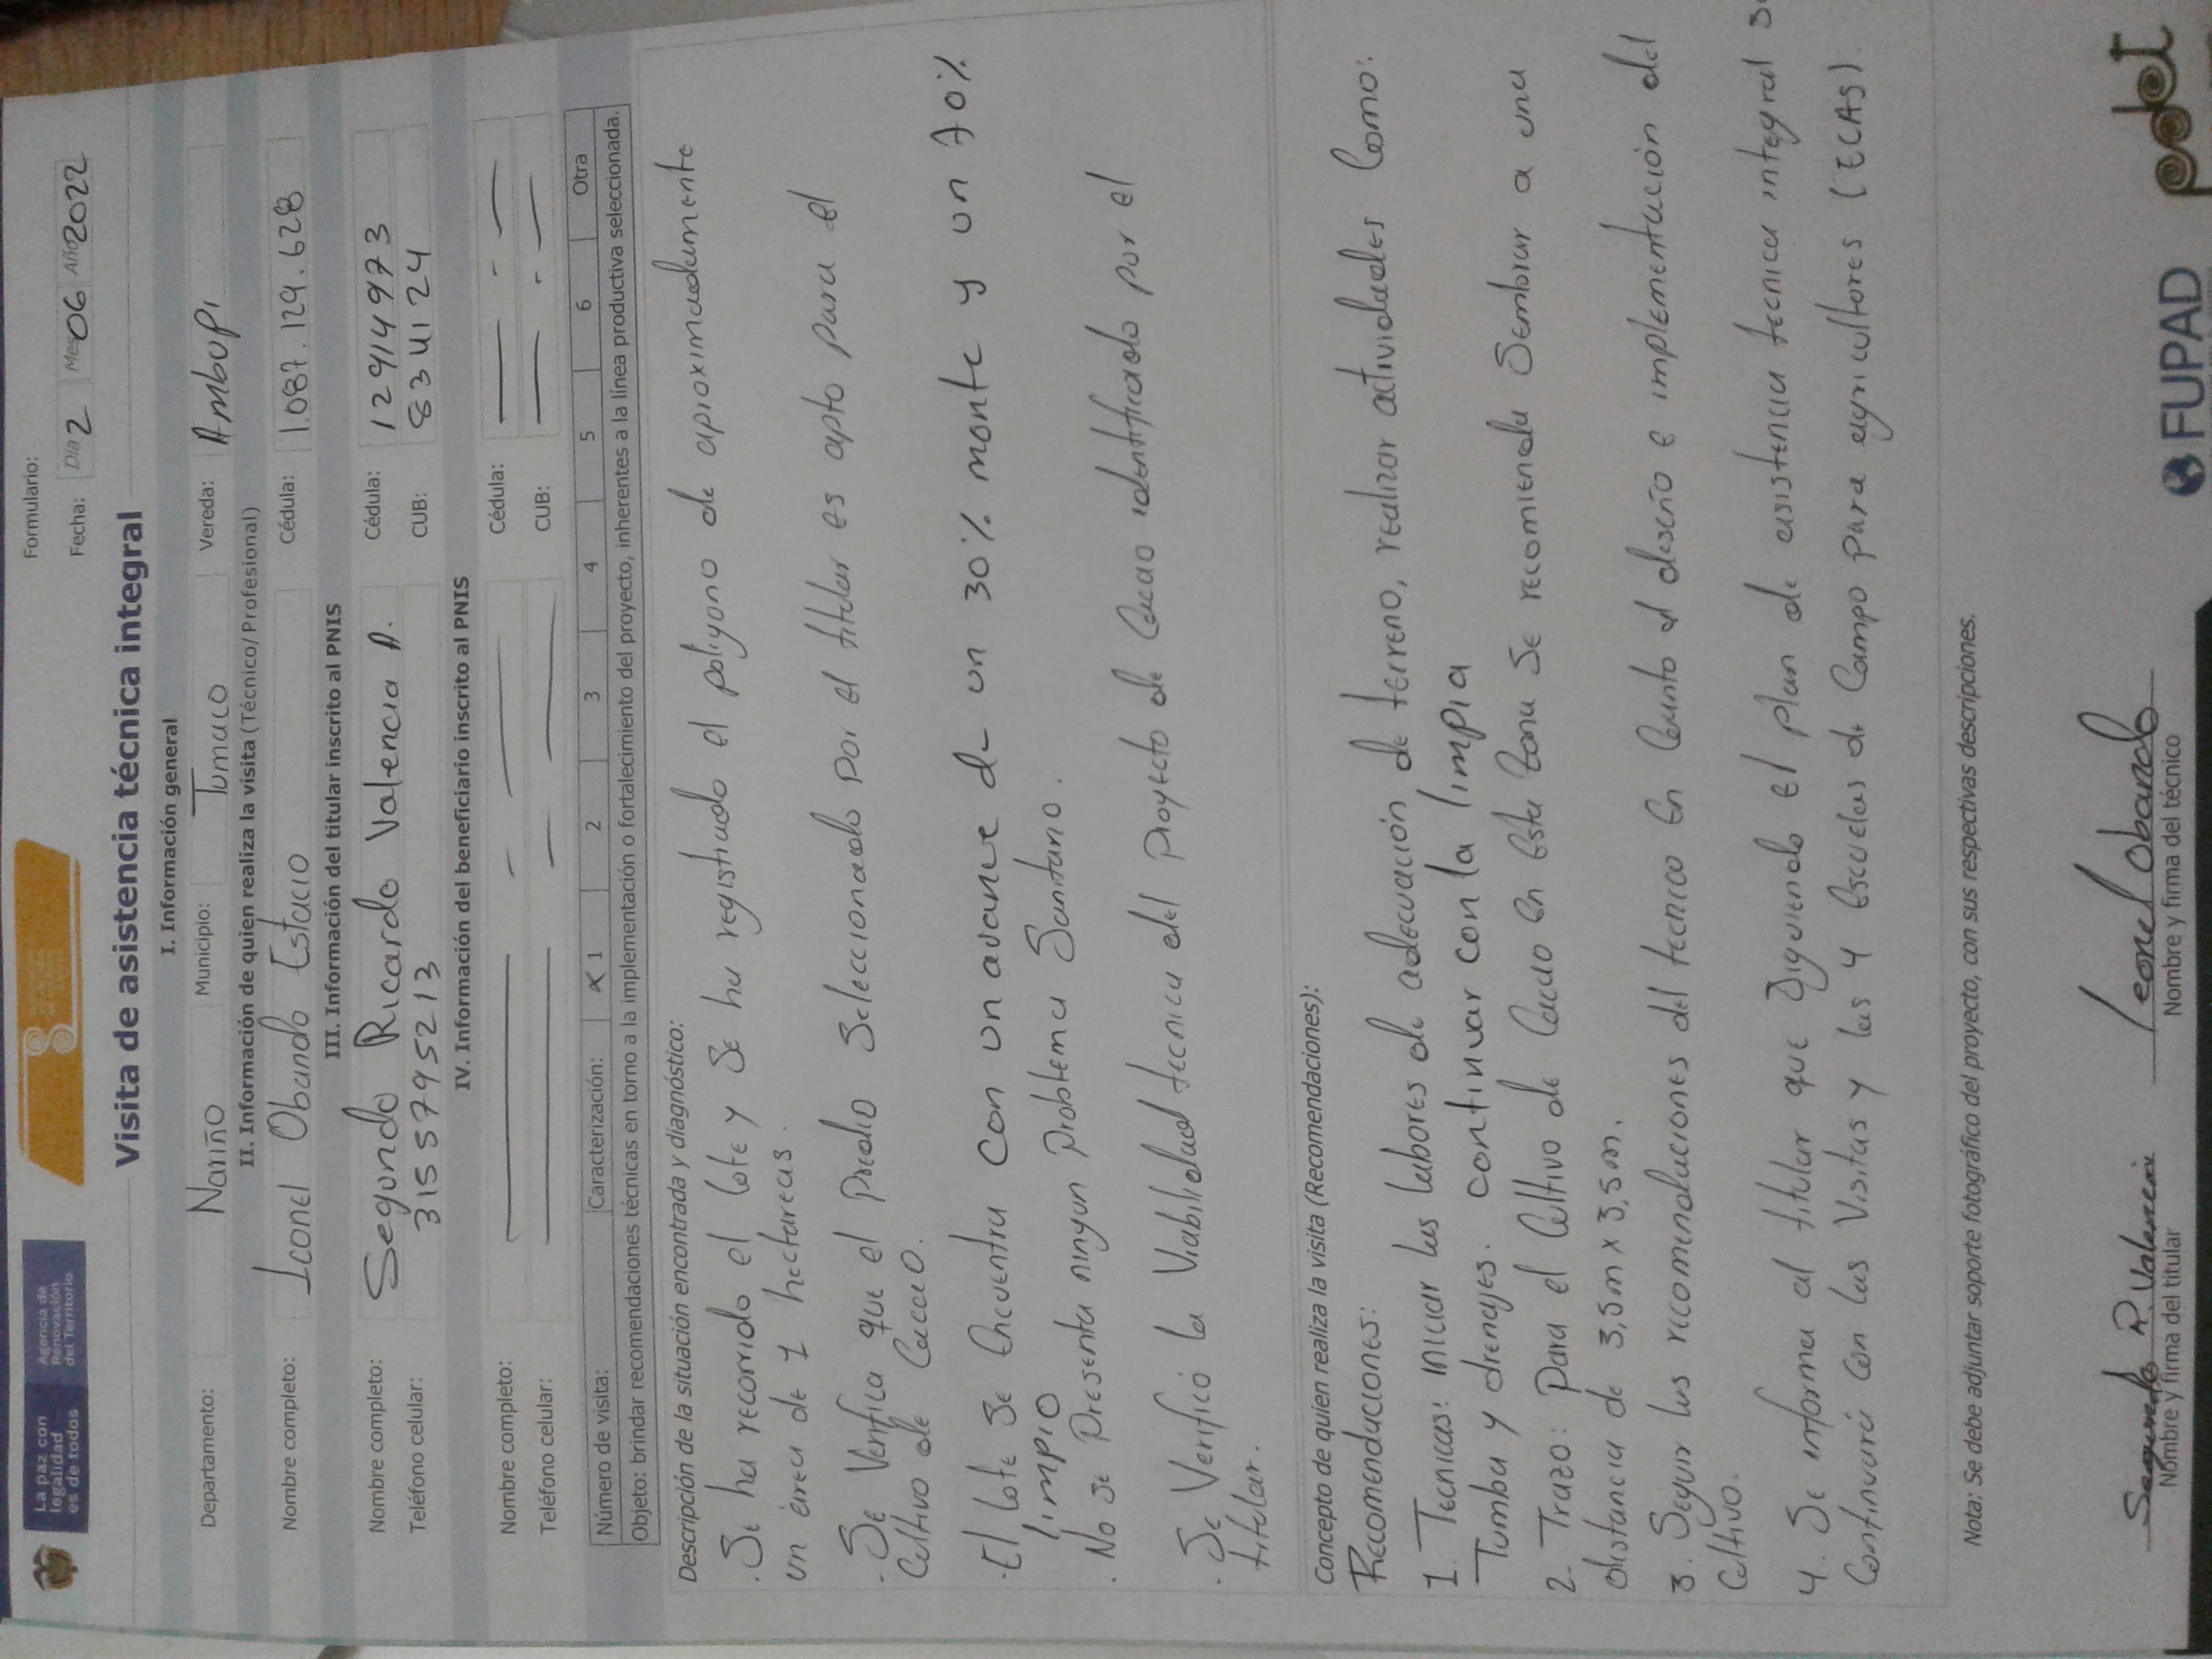 La paz con
legalidad
es de todos
Agencia de
Renovación
del Territorio
Formulario:
Fecha: Día 2 Mes 06 Año 2022
Visita de asistencia técnica integral
I. Información general
Departamento: Nariño Municipio: Tumaco Vereda: Ambupi
II. Información de quien realiza la visita (Técnico/Profesional)
Nombre completo: Leonel Obando Estacio Cédula: 1.087.129.628
III. Información del titular inscrito al PNIS
Nombre completo: Segundo Ricardo Valencia A. Cédula: 12914973
Teléfono celular: 3155795213 CUB:
IV. Información del beneficiario inscrito al PNIS
Nombre completo: Cédula:
Teléfono celular: CUB:
Número de visita: Caracterización: X 1 2 3 4 5 6 Otra
Objeto: brindar recomendaciones técnicas en torno a la implementación o fortalecimiento del proyecto, inherentes a la línea productiva seleccionada.
Descripción de la situación encontrada y diagnóstico:
. Se ha recorrido el lote y se ha registrado el poligono de aproximadamente
un área de 1 hectareas.
- Se Verifica que el Predio Seleccionado por el titular es apto para el
Cultivo de Cacao.
- El lote se Encuentra con un avance de un 30% monte y un 70%
limpio
. No se Presenta ningun problema Sanitario.
. Se Verificó la Viabilidad tecnica del Proyecto de Cacao identificado por el
titular.
Concepto de quien realiza la visita (Recomendaciones):
Recomendaciones:
1. Tecnicas: iniciar las labores de adecuación de terreno, realizar actividades Como:
Tumba y drenajes. continuar con la limpia
2. Trazo: Para el Cultivo de Cacao en esta Zona Se recomienda Sembrar a una
distancia de 3,5m x 3,5m.
3. Seguir las recomendaciones del tecnico en Cuanto al diseño e implementación del
Cultivo.
4. Se informa al titular que Siguiendo el plan de asistencia tecnica integral se
Continuará con las Visitas y las 4 Escuelas de Campo para agricultores (ECAS).
Nota: Se debe adjuntar soporte fotográfico del proyecto, con sus respectivas descripciones.
Segundo R. Valencia
Nombre y firma del titular
Leonel Obando
Nombre y firma del técnico
FUPAD
pdet